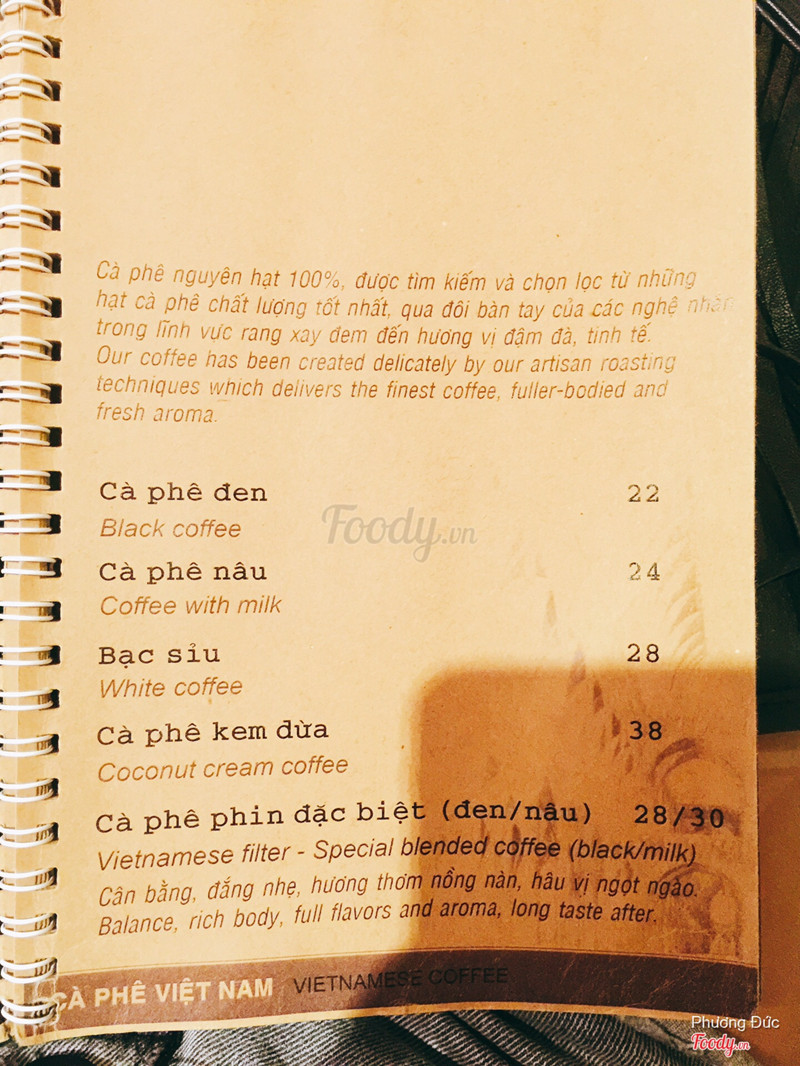 Cà phê nguyên hạt 100%, được tìm kiếm và chọn lọc từ những
hạt cà phê chất lượng tốt nhất, qua đôi bàn tay của các nghệ nhân
trong lĩnh vực rang xay đem đến hương vị đậm đà, tinh tế.
Our coffee has been created delicately by our artisan roasting
techniques which delivers the finest coffee, fuller-bodied and
fresh aroma.
Cà phê đen 22
Black coffee
Foody.vn
Cà phê nâu 24
Coffee with milk
Bạc sỉu 28
White coffee
Cà phê kem dừa 38
Coconut cream coffee
Cà phê phin đặc biệt (đen/nâu) 28/30
Vietnamese filter - Special blended coffee (black/milk)
Cân bằng, đắng nhẹ, hương thơm nồng nàn, hâu vị ngọt ngào.
Balance, rich body, full flavors and aroma, long taste after.
CÀ PHÊ VIỆT NAM VIETNAMESE COFFEE
Phương Đức
Foody.vn